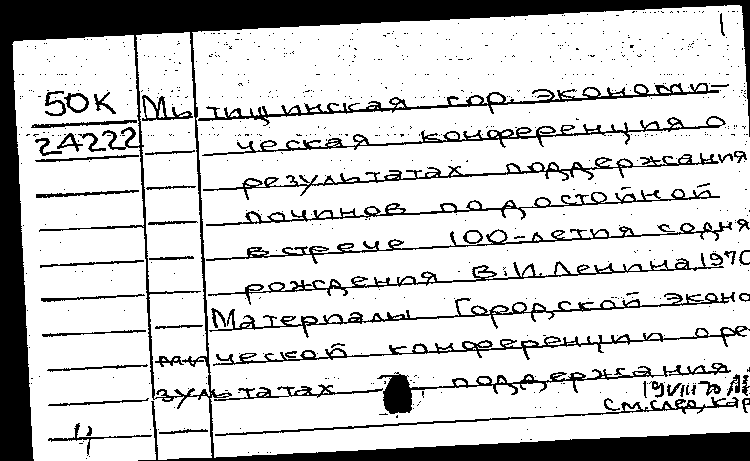 50К Мытищинская гор. экономи-
24222 ческая конференция о
результатах поддержания
починов по достойной
встрече 100-летия со дня
рождения В.И. Ленина, 1970
Материалы Городской эконо
ческой конференции о ре
зультатах поддержания
19 VIII 70
См. след. кар
4